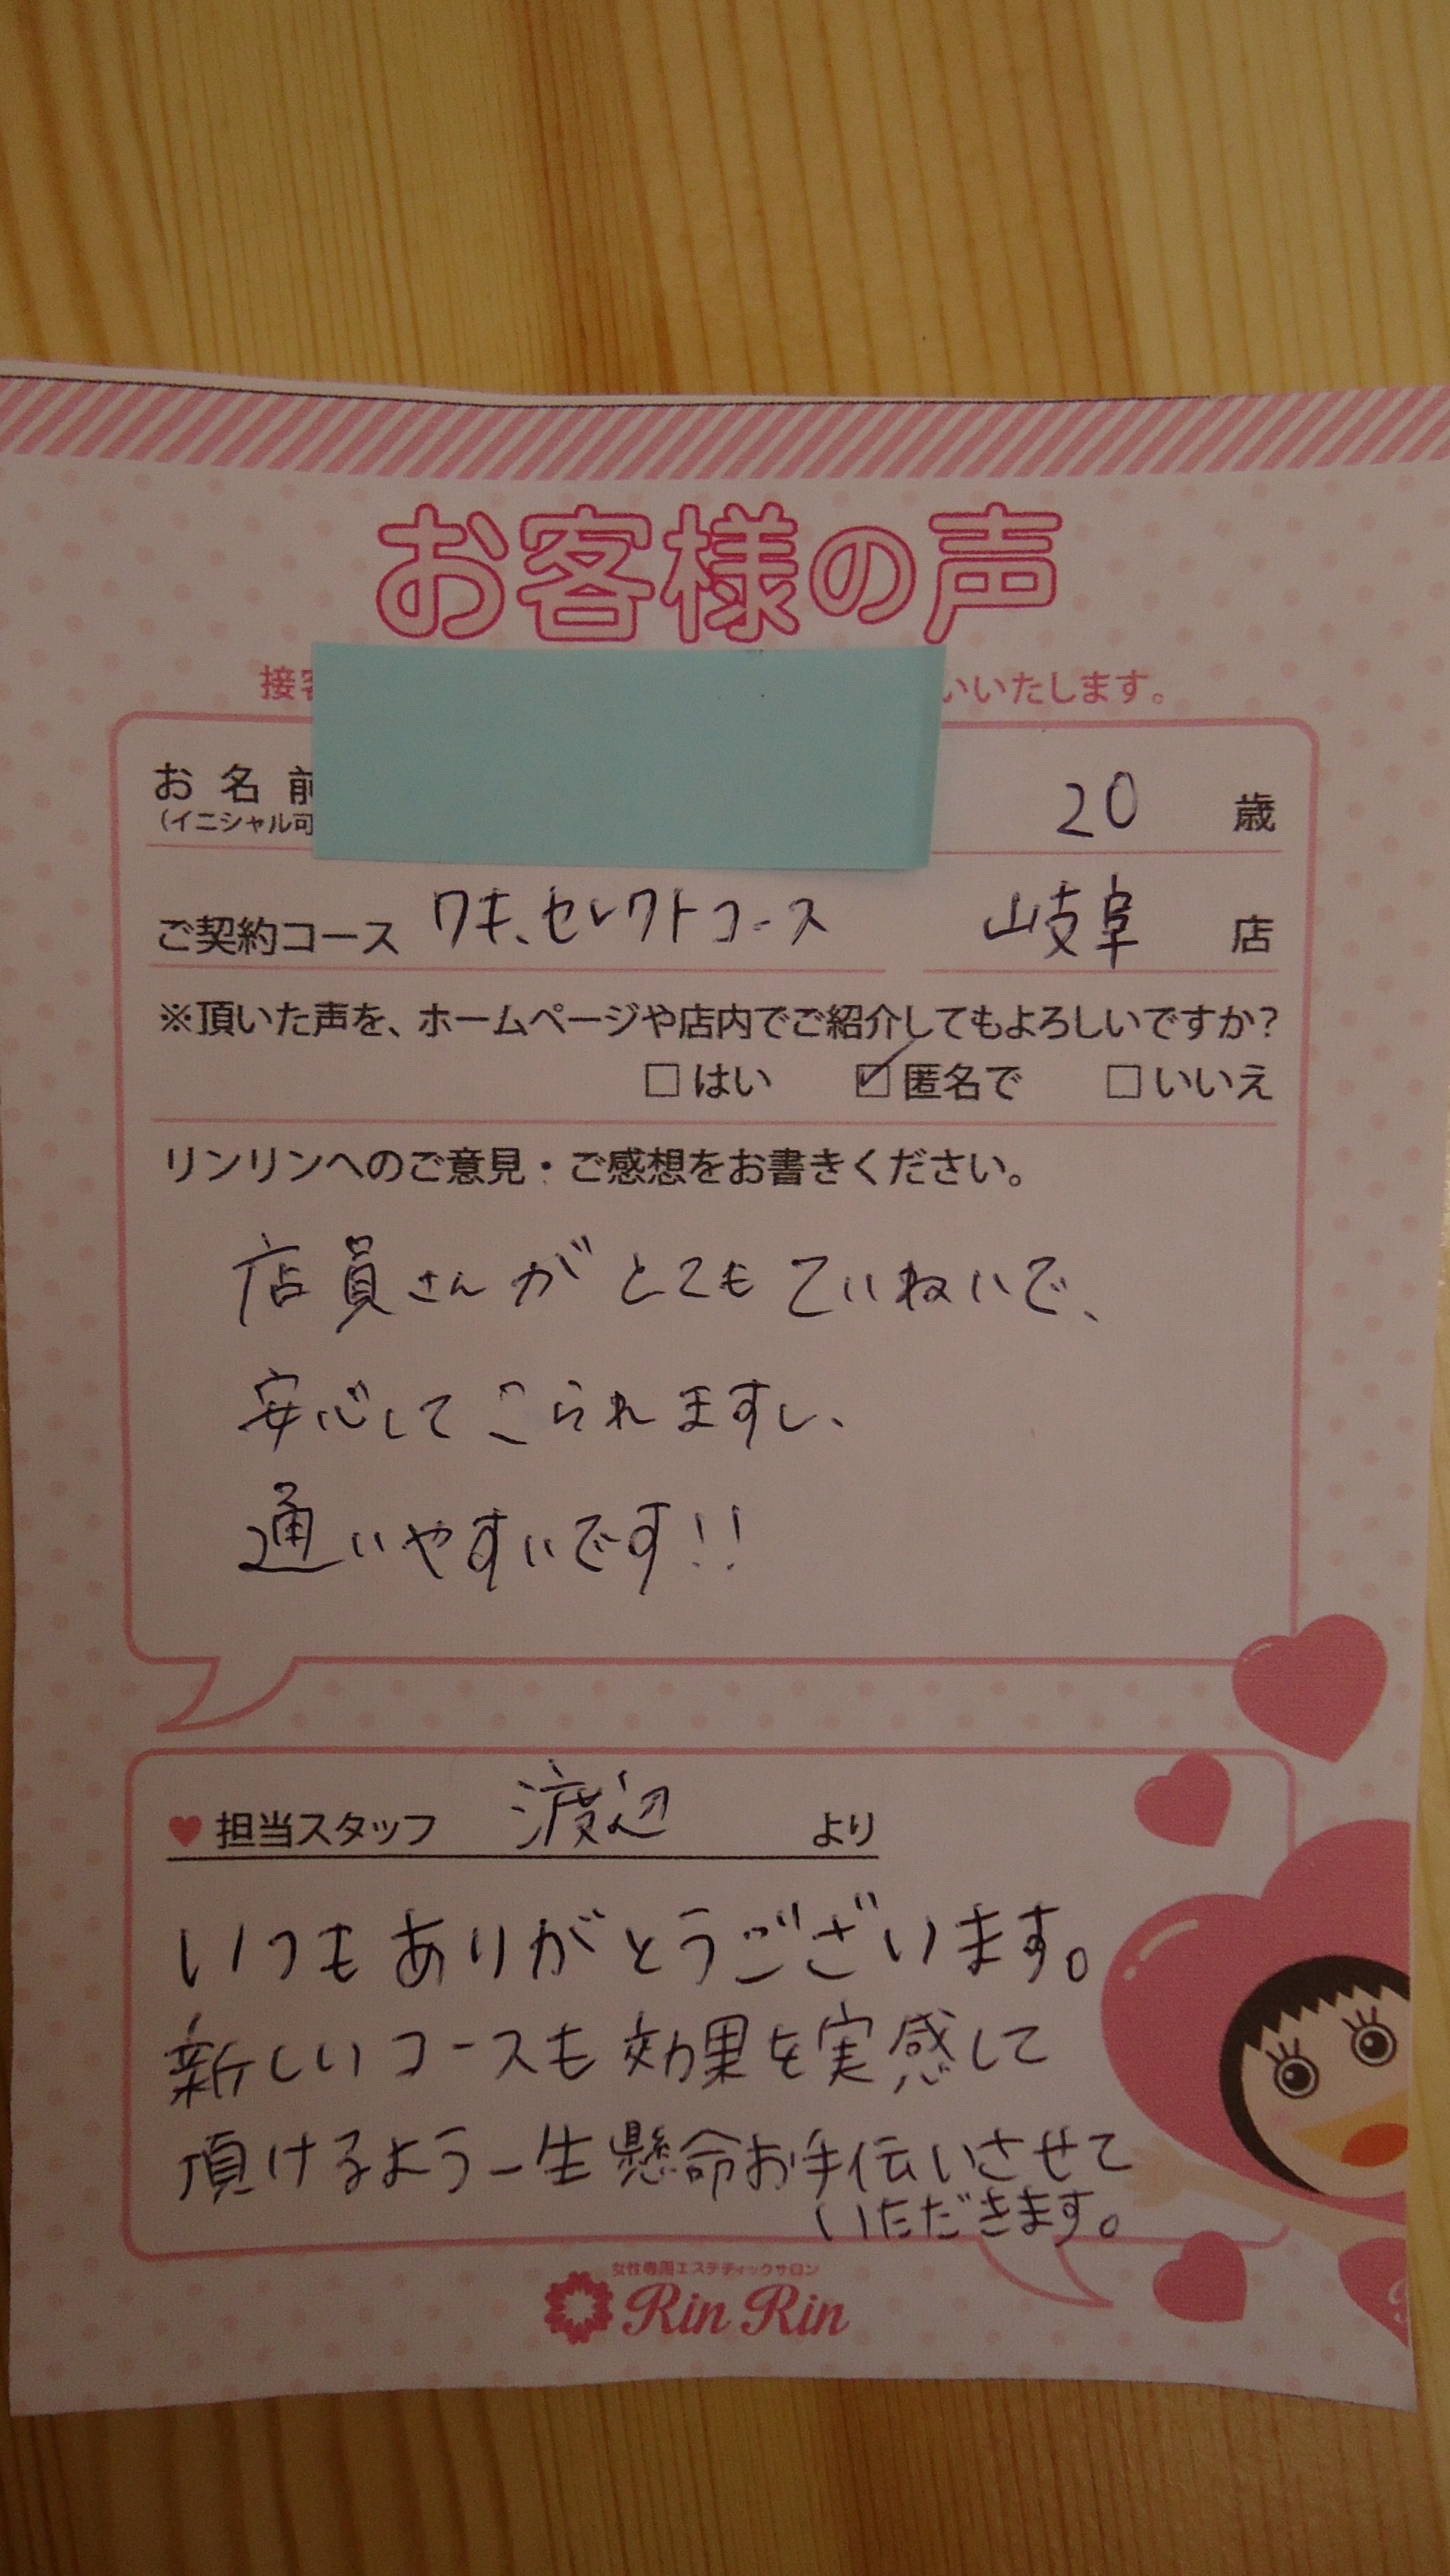 お客様の声
接客 いいたします。
お名前 20 歳
(イニシャル可
ご契約コース ワキ、セレクトコース 岐阜 店
※頂いた声を、ホームページや店内でご紹介してもよろしいですか？
□はい ☑匿名で □いいえ
リンリンへのご意見・ご感想をお書きください。
店員さんがとてもていねいで、
安心してこられますし、
通いやすいです!!
♥担当スタッフ 渡辺 より
いつもありがとうございます。
新しいコースも効果を実感して
頂けるよう一生懸命お手伝いさせて
いただきます。
女性専用エステティックサロン
Rin Rin